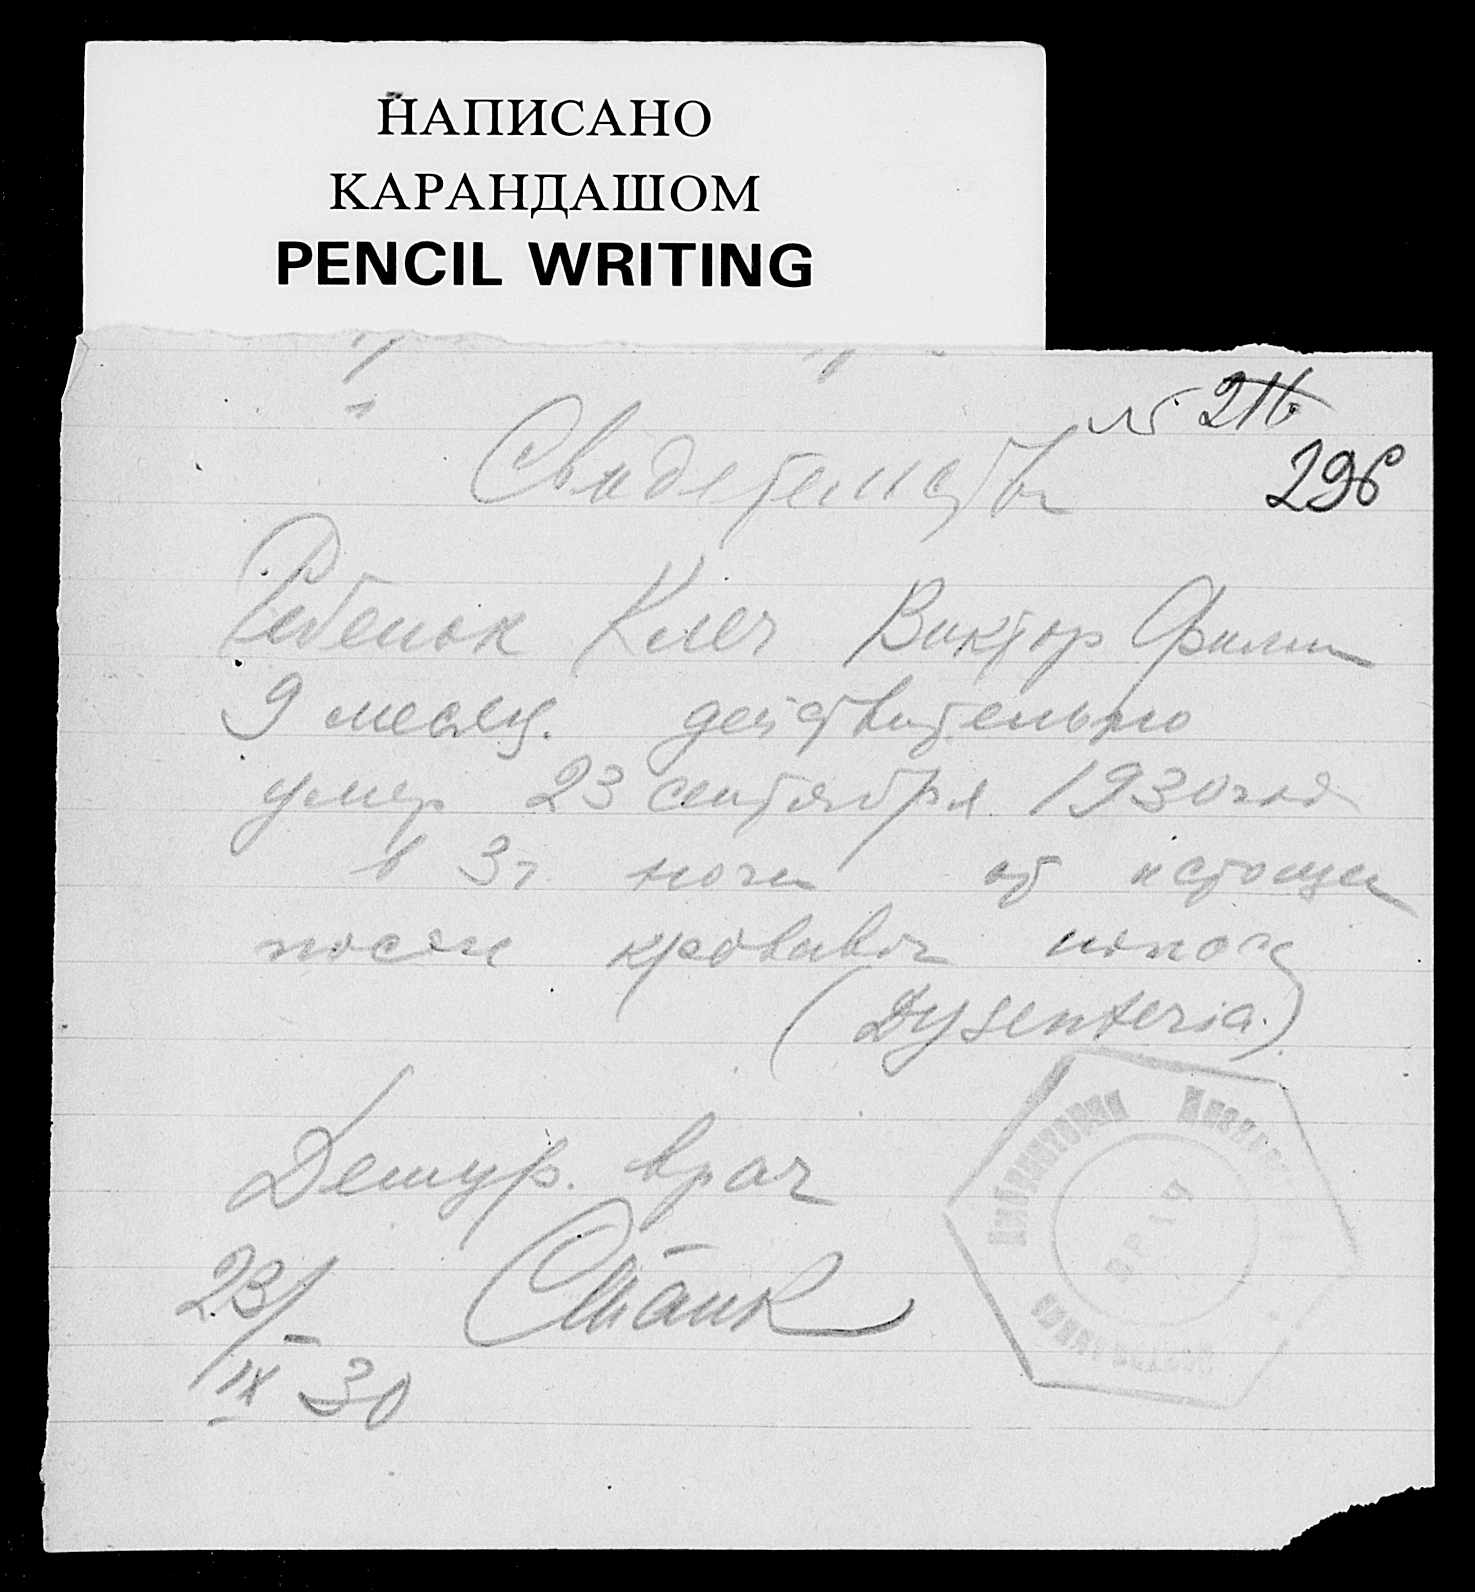 НАПИСАНО
КАРАНДАШОМ
PENCIL WRITING
№ 216
296
Свидетельство
Ребенок Клеч Виктор Филип
9 месяц. действительно
умер 23 сентября 1930 года
в 3 ч. ночи от истощен
после кроваваго поноса
(Dysenteria.)
Дежур. врач
23/IX 30